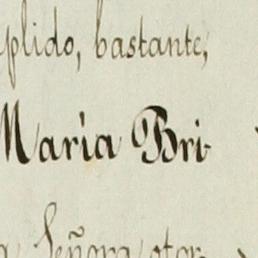 plido, bastante,
Maria Bri-
a Señora otor